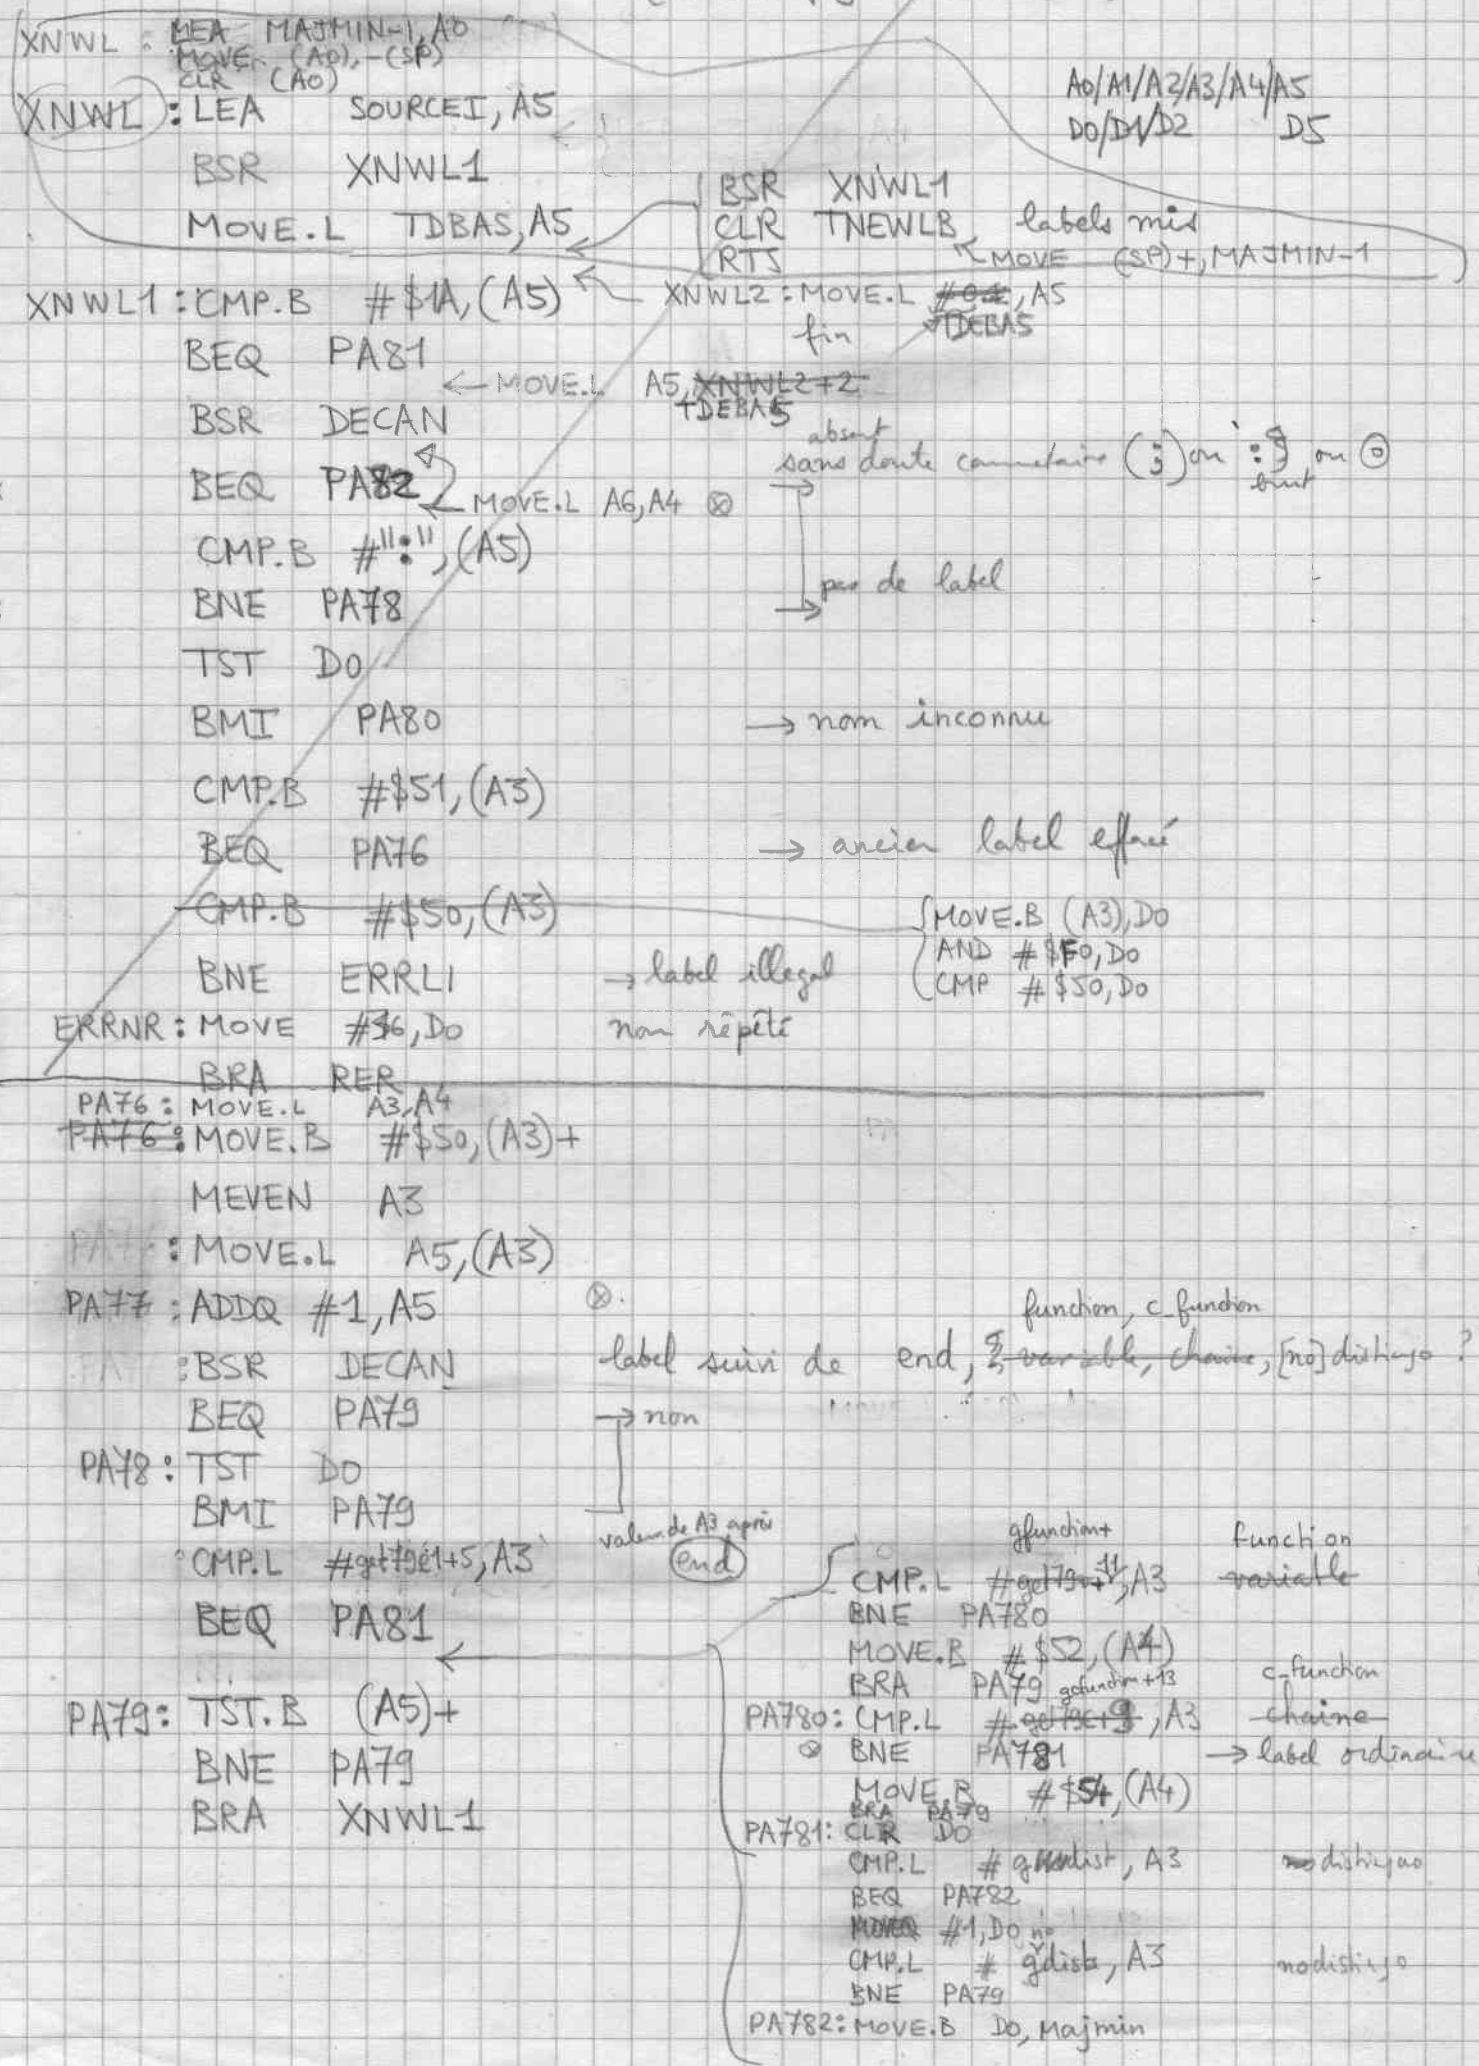 XNWL : LEA MAJMIN-1, A0
MOVE (A0), -(SP)
CLR (A0)
XNWL : LEA SOURCEI, A5
A0/A1/A2/A3/A4/A5
D0/D1/D2 D5
BSR XNWL1
MOVE.L TDBAS, A5
BSR XNWL1
CLR TNEWLB labels mis
RTS
MOVE (SP)+, MAJMIN-1
XNWL1 : CMP.B #$1A, (A5)
XNWL2 : MOVE.L , A5
TDEBA5
fin
BEQ PA81
← MOVE.L A5, XNWL2+2
TDEBA5
BSR DECAN
absent
sans doute commentaire (;) ou
BEQ PA82
← MOVE.L A6, A4 ⊗
CMP.B #":", (A5)
BNE PA78
→ pas de label
TST D0
BMI PA80 → nom inconnu
CMP.B #$51, (A3)
BEQ PA76 → ancien label effacé
CMP.B #$50, (A3)
MOVE.B (A3), D0
AND #$F0, D0
CMP #$50, D0
BNE ERRLI → label illegal
ERRNR : MOVE #$6, D0 nom répété
BRA RER
PA76 : MOVE.L A3, A4
PA76 : MOVE.B #$50, (A3)+
MEVEN A3
: MOVE.L A5, (A3)
PA77 : ADDQ #1, A5 ⊗
function, c_function
: BSR DECAN label suivi de end, variable, chaine, [no] distingo ?
BEQ PA79 → non
PA78 : TST D0
BMI PA79
CMP.L #get79e1+5, A3 valeur de A3 après end
BEQ PA81
PA79 : TST.B (A5)+
BNE PA79
BRA XNWL1
gfunction+
function
CMP.L #get79v+11, A3 variable
BNE PA780
MOVE.B #$52, (A4)
BRA PA79
gcfunction+13
c_function
PA780 : CMP.L #get79c+9, A3 chaine
BNE PA781 → label ordinaire
MOVE.B #$54, (A4)
BRA PA79
PA781 : CLR D0
CMP.L # , A3 distingo
BEQ PA782
MOVEQ #1, D0
CMP.L # gnodist, A3 nodistingo
BNE PA79
PA782 : MOVE.B D0, Majmin